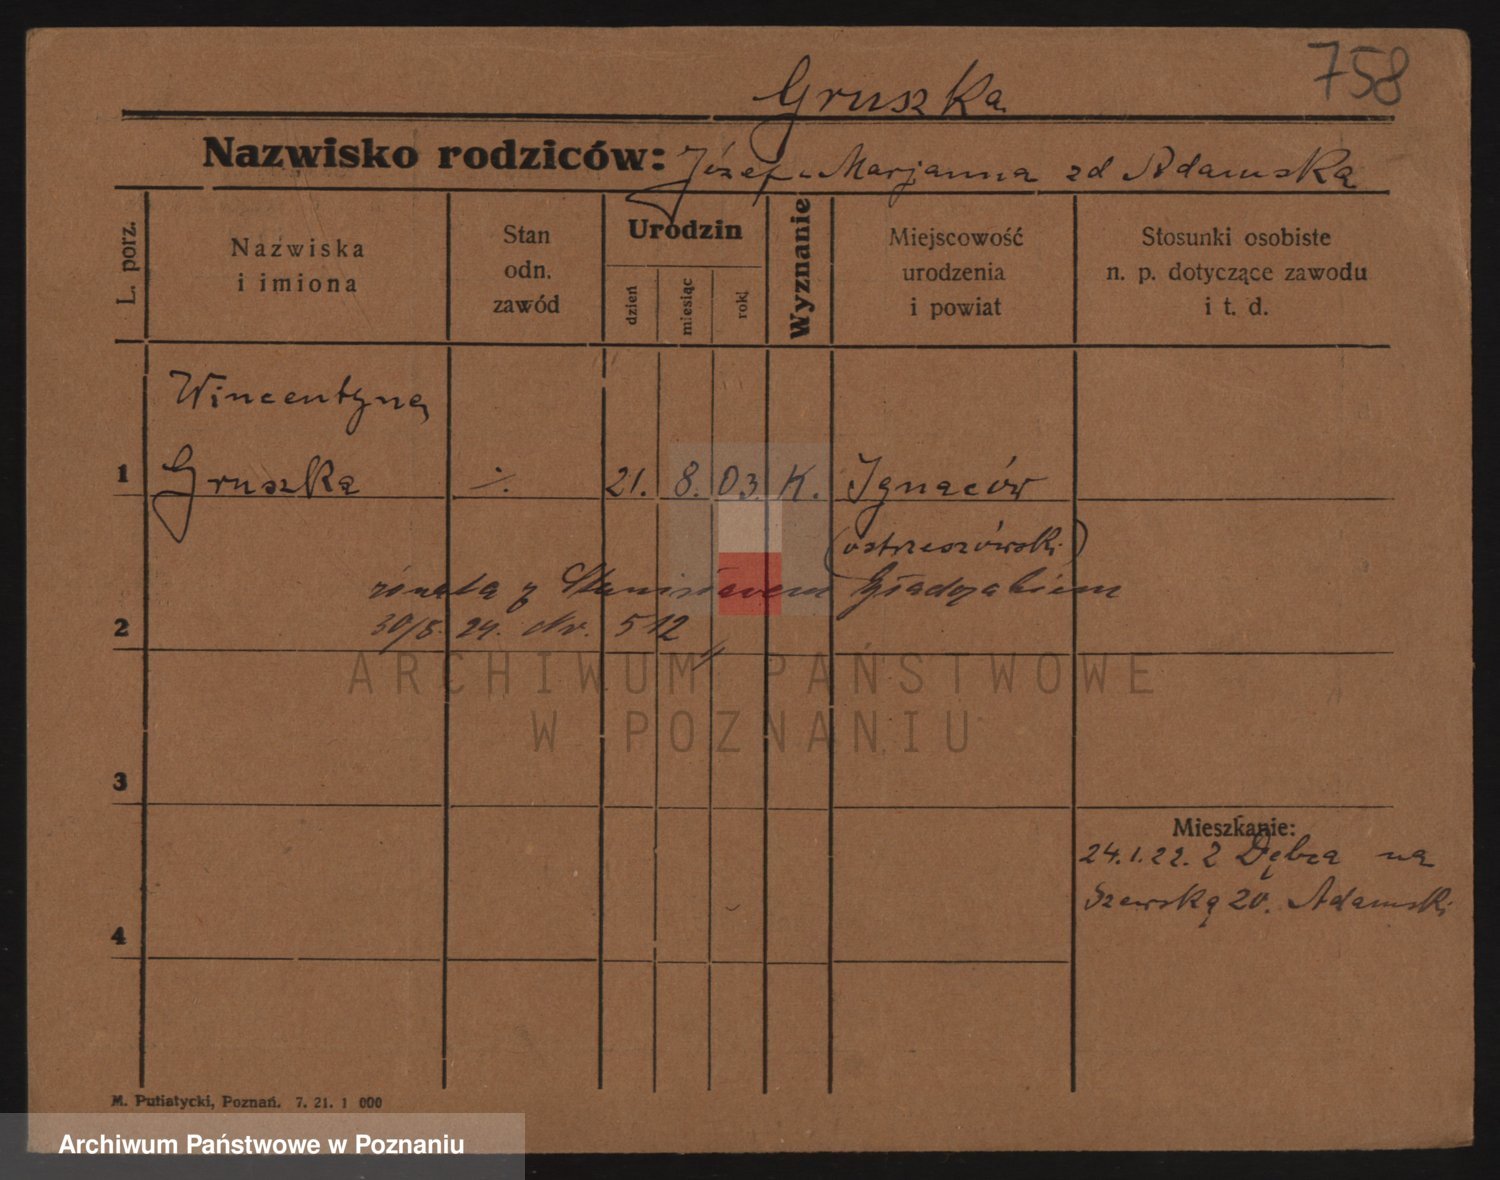 758
Gruszka
Nazwisko rodziców: Józef i Marjanna zd Adamska
L. porz.
Nazwiska
i imiona
Stan
odn.
zawód
Urodzin
dzień
miesiąc
rok
Wyznanie
Miejscowość
urodzenia
i powiat
Stosunki osobiste
n. p. dotyczące zawodu
i t. d.
Wincentyna
1 Gruszka ./. 21. 8. 03. K. Ignaców
(ostrzeszówski)
zoneta z Stanisławem Gładzakiem
2 30/8. 24. Nr. 512
ARCHIWUM PAŃSTWOWE
W POZNANIU
3
Mieszkanie:
24.1.22. Z Dębca na
Szewską 20. Adamski
4
M. Putiatycki, Poznań. 7. 21. 1 000
Archiwum Państwowe w Poznaniu